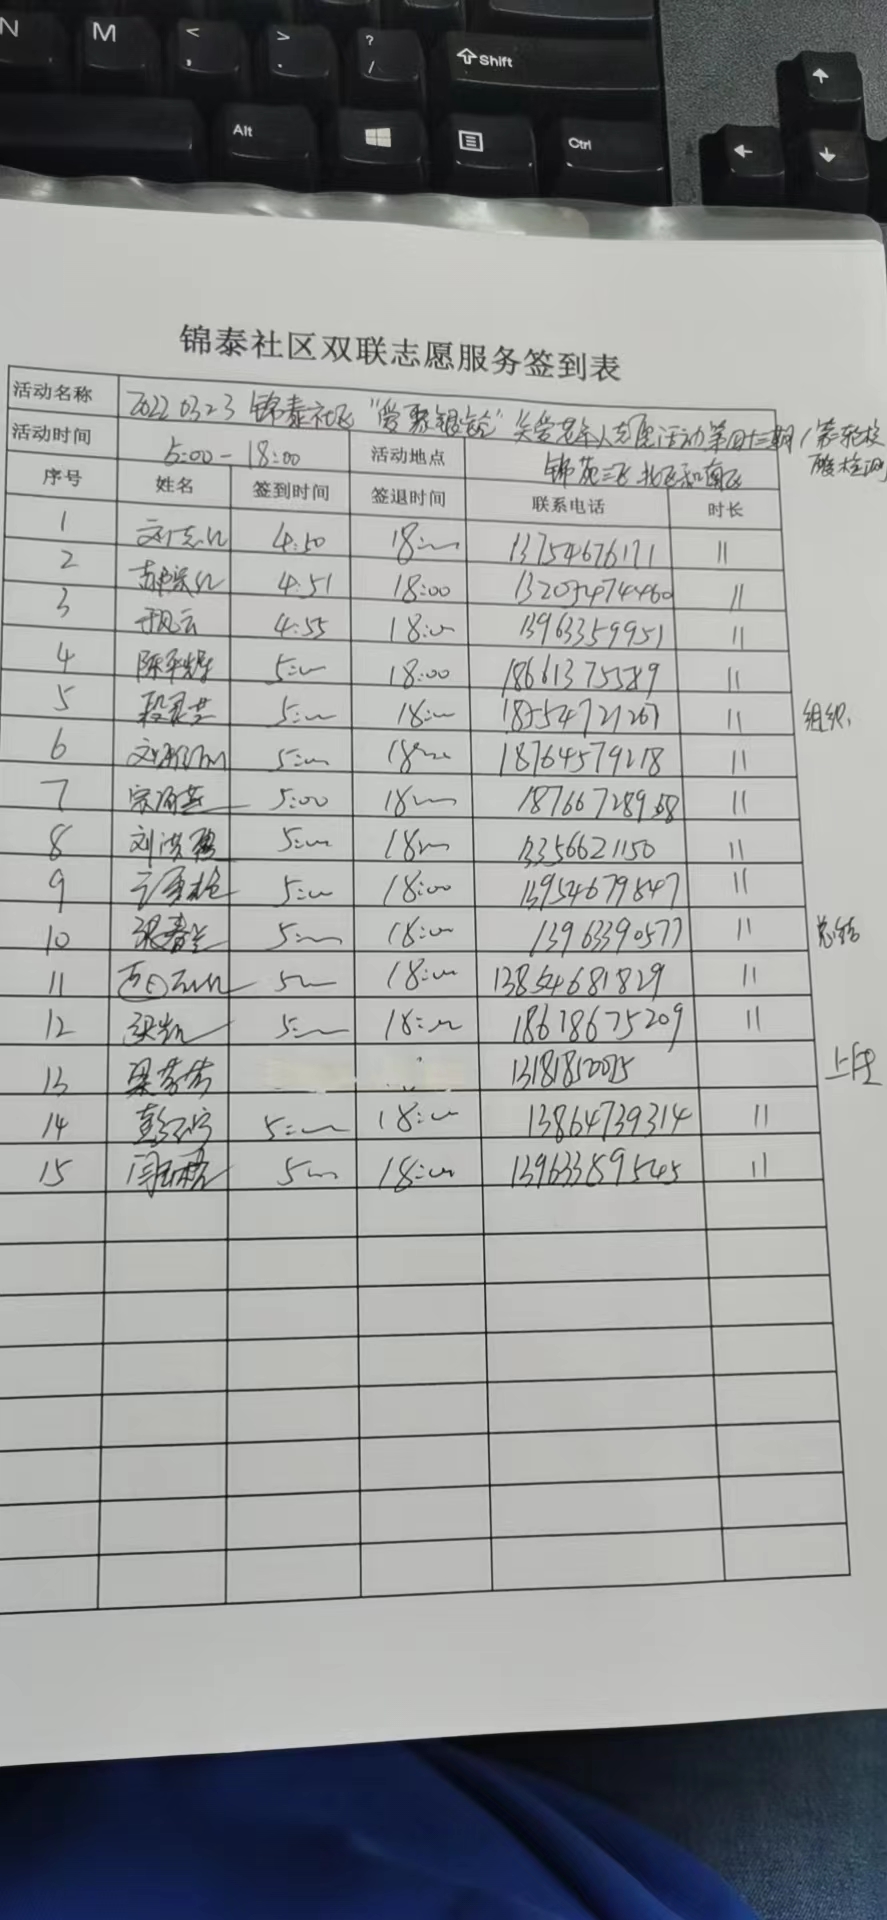 N M < , > . ? / Shift
Alt Ctrl
锦泰社区双联志愿服务签到表
活动名称 2022 0323 锦泰社区"爱聚银龄"关爱老年人志愿活动第四十三期/第一轮核酸检测
活动时间 5:00-18:00 活动地点 锦苑三区北区和南区
序号 姓名 签到时间 签退时间 联系电话 时长
1 4:50 18:00 13754676171 11
2 4:51 18:00 11
3 于风云 4:55 18:00 13963359951 11
4 5:00 18:00 18661375589 11
5 段灵芝 5:00 18:00 18554721267 11 组织
6 5:00 18:00 18764579218 11
7 5:00 18:00 18766728968 11
8 刘洪 5:00 18:00 13356621150 11
9 5:00 18:00 13954679847 11
10 梁春兰 5:00 18:00 13963390577 11 总结
11 5:00 18:00 13854681829 11
12 梁凯 5:00 18:00 18678675209 11
13 梁芳芳 上传
14 5:00 18:00 13864739314 11
15 5:00 18:00 11